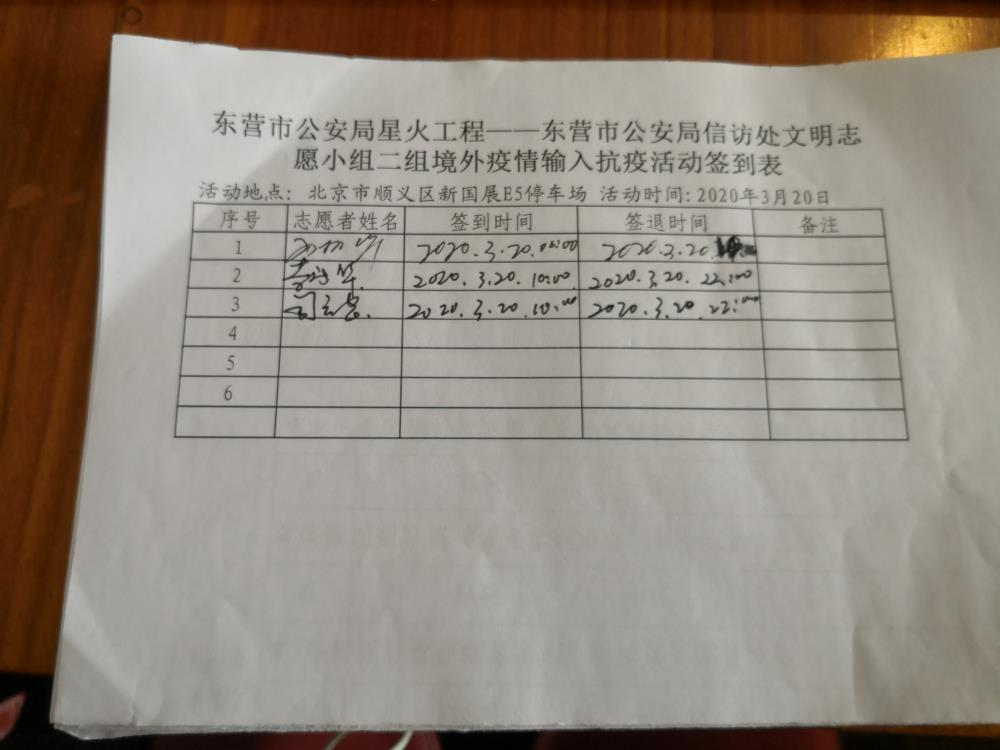 东营市公安局星火工程——东营市公安局信访处文明志
愿小组二组境外疫情输入抗疫活动签到表
活动地点: 北京市顺义区新国展E5停车场 活动时间: 2020年3月20日
序号 志愿者姓名 签到时间 签退时间 备注
1 2020.3.20. 2020.3.20.
2 2020.3.20. 10:00 2020.3.20. 22:00
3 2020.3.20. 10:00 2020.3.20. 22:00
4
5
6